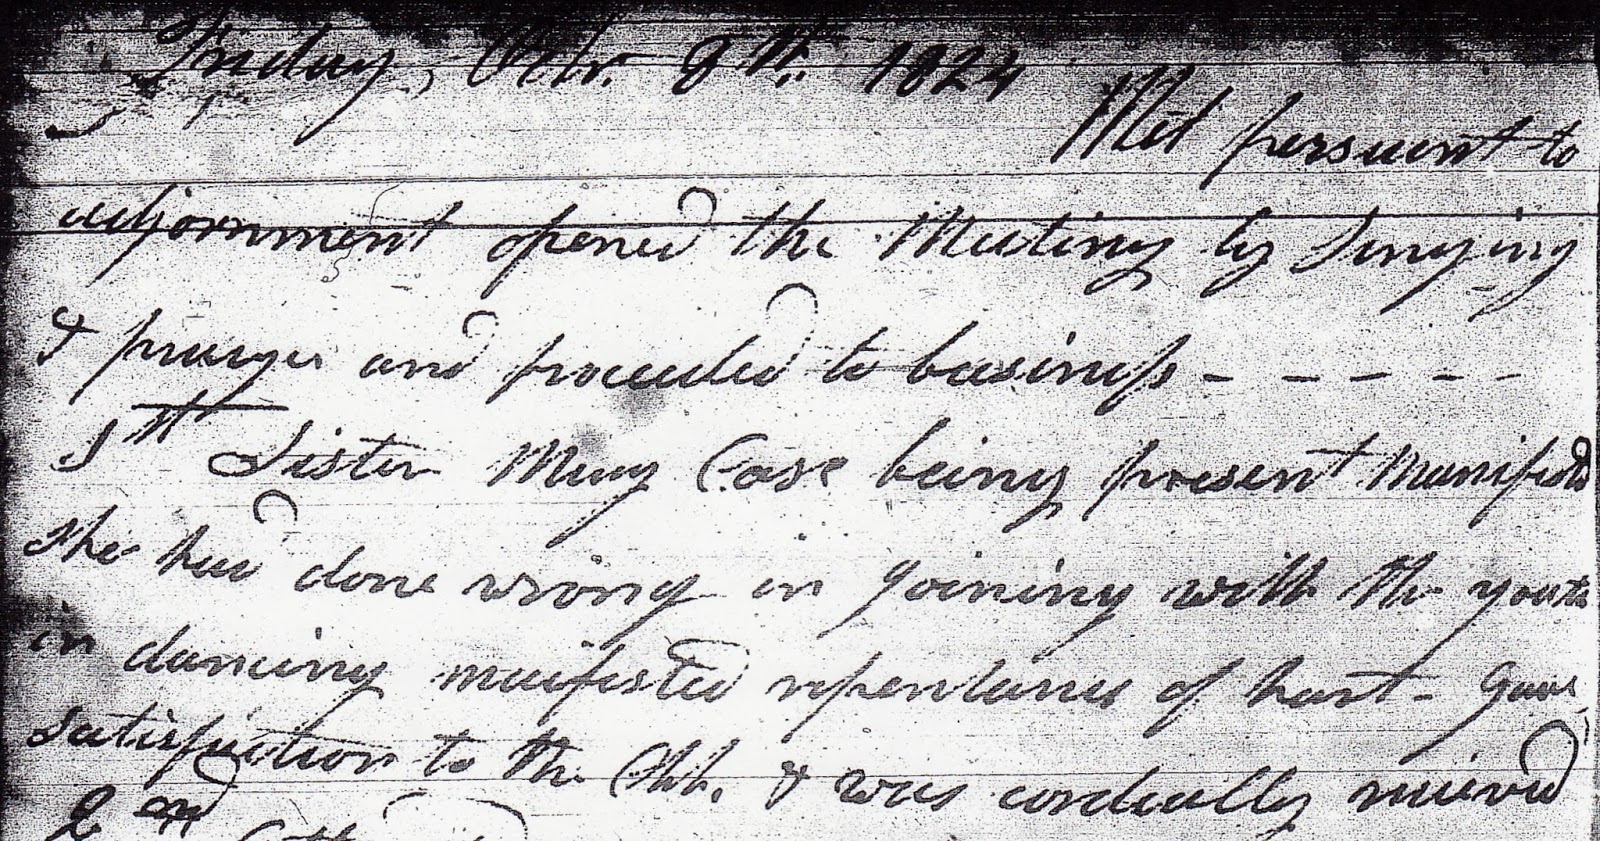 Friday, Octr. 8th. 1824
Met persuent to
adjornment opened the Meeting by Singing
& prayer and proceeded to business - - - - -
1st Sister Mary Case being present Manifested
she had done wrong in joining with the youth
in dancing manifested repentance of hart - gave
satisfaction to the Chh. & was cordially recieved
2nd